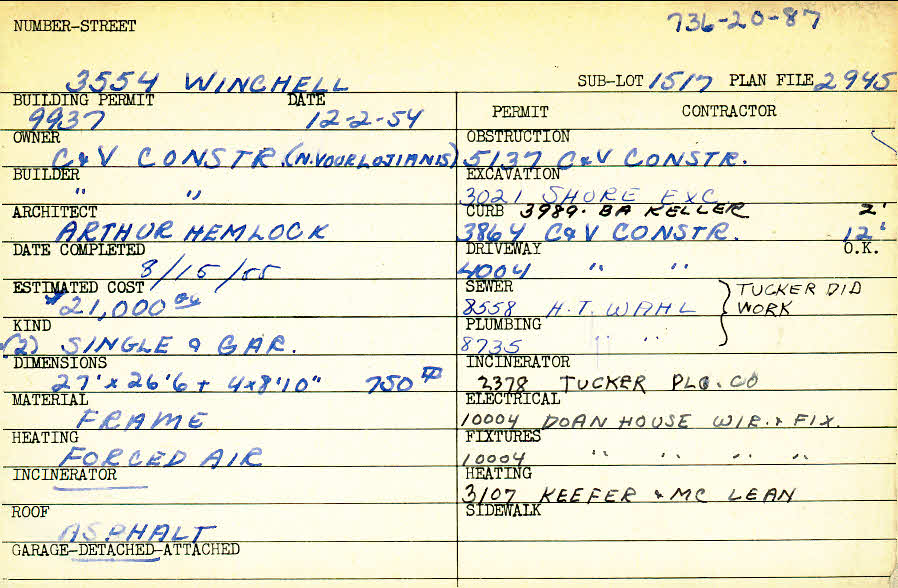 736-20-87
NUMBER-STREET
3554 WINCHELL SUB-LOT 1517 PLAN FILE 2945
BUILDING PERMIT DATE
9937 12-2-54
OWNER
C&V CONSTR. (N. VOURLOJIANIS)
BUILDER
" "
ARCHITECT
ARTHUR HEMLOCK
DATE COMPLETED
8/15/55
ESTIMATED COST
$21,000
KIND
(2) SINGLE & GAR.
DIMENSIONS
27' x 26'6 + 4x8'10" 750
MATERIAL
FRAME
HEATING
FORCED AIR
INCINERATOR
ROOF
ASPHALT
GARAGE-DETACHED-ATTACHED
PERMIT CONTRACTOR
OBSTRUCTION
5137 C&V CONSTR.
EXCAVATION
3021 SHORE EXC
CURB 3989. BA KELLER 2'
3864 C&V CONSTR. 12'
DRIVEWAY O.K.
4004 " "
SEWER
8558 H.T. WAHL } TUCKER DID WORK
PLUMBING
8735 " "
INCINERATOR
2378 TUCKER PLG. CO
ELECTRICAL
10004 DOAN HOUSE WIR. & FIX.
FIXTURES
10004 " " " "
HEATING
3107 KEEFER & MC LEAN
SIDEWALK